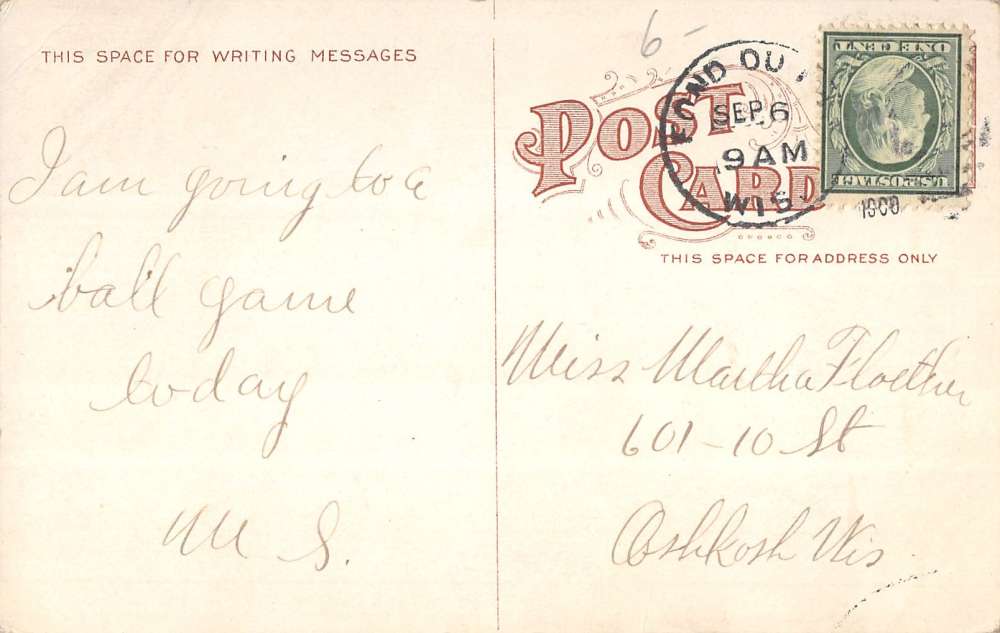 THIS SPACE FOR WRITING MESSAGES
I am going to a
ball game
today
M S.
6-
POST
CARD
FOND DU
SEP 6
9 AM
WIS.
ONE CENT
U.S. POSTAGE
THIS SPACE FOR ADDRESS ONLY
Miss Martha Floether
601-10 St
Oshkosh Wis